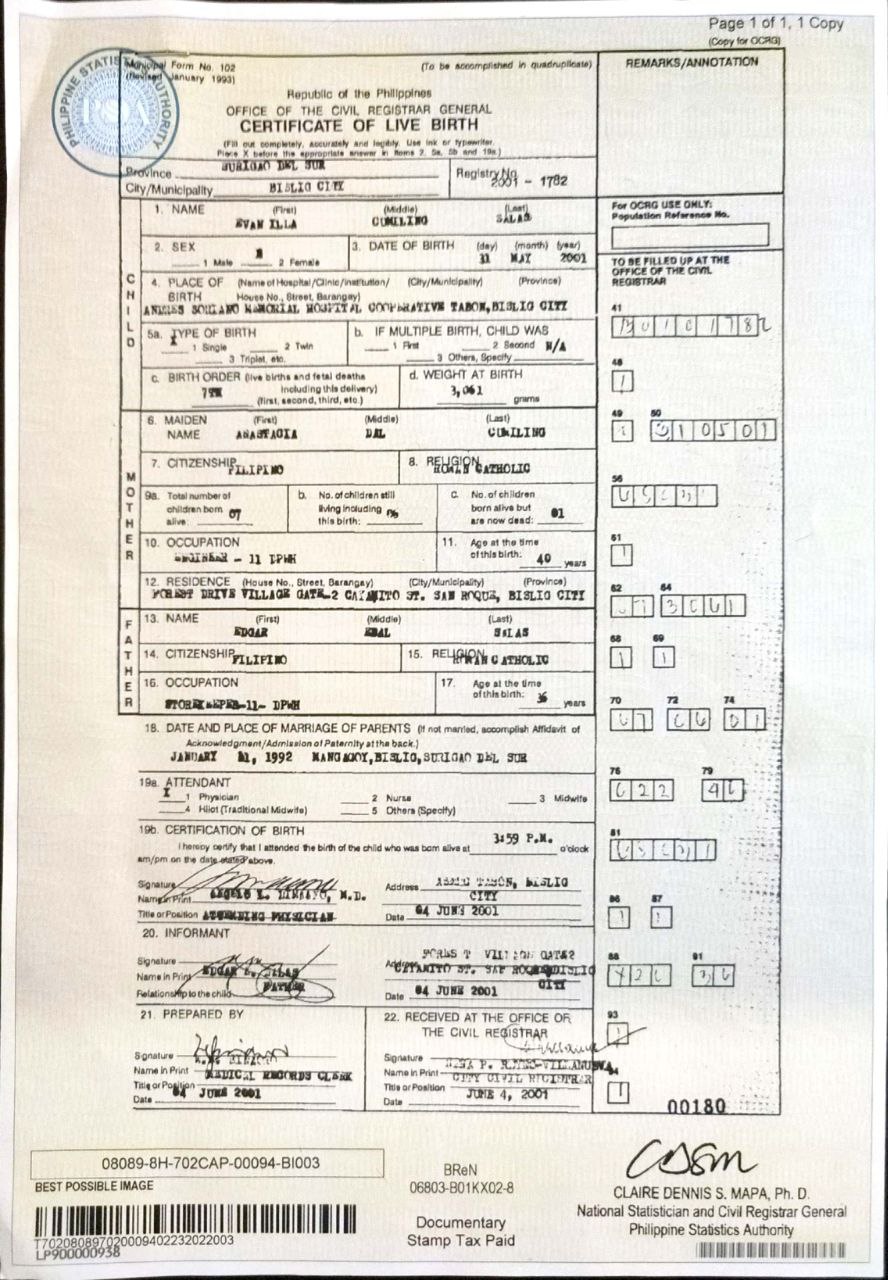 Page 1 of 1, 1 Copy
(Copy for OCRG)
PHILIPPINE STATISTICS AUTHORITY
PSA
Municipal Form No. 102
(Revised January 1993)
(To be accomplished in quadruplicate)
REMARKS/ANNOTATION
Republic of the Philippines
OFFICE OF THE CIVIL REGISTRAR GENERAL
CERTIFICATE OF LIVE BIRTH
(Fill out completely, accurately and legibly. Use ink or typewriter.
Place X before the appropriate answer in Items 2, 5a, 5b and 19a.)
Province SURIGAO DEL SUR
Registry No. 2001 - 1782
City/Municipality BISLIG CITY
For OCRG USE ONLY:
Population Reference No.
CHILD
1. NAME (First) (Middle) (Last)
EVAN ILLA CUMILING SALAS
2. SEX
1 Male 2 Female
3. DATE OF BIRTH (day) (month) (year)
31 MAY 2001
TO BE FILLED UP AT THE
OFFICE OF THE CIVIL
REGISTRAR
4. PLACE OF BIRTH (Name of Hospital/Clinic/Institution/ (City/Municipality) (Province)
House No., Street, Barangay)
ANDRES SORIANO MEMORIAL HOSPITAL COOPERATIVE TABON, BISLIG CITY
41
5a. TYPE OF BIRTH
X 1 Single 2 Twin
3 Triplet, etc.
b. IF MULTIPLE BIRTH, CHILD WAS
1 First 2 Second N/A
3 Others, Specify
c. BIRTH ORDER (live births and fetal deaths
7TH including this delivery)
(first, second, third, etc.)
d. WEIGHT AT BIRTH
3,061
grams
48
1
MOTHER
6. MAIDEN NAME (First) (Middle) (Last)
ANASTACIA DAL CUMILING
49 50
1 310501
7. CITIZENSHIP FILIPINO
8. RELIGION ROMAN CATHOLIC
9a. Total number of
children born
alive: 07
b. No. of children still
living including
this birth: 06
c. No. of children
born alive but
are now dead: 01
56
10. OCCUPATION
ENGINEER - 11 DPWH
11. Age at the time
of this birth: 40 years
61
1
12. RESIDENCE (House No., Street, Barangay) (City/Municipality) (Province)
FOREST DRIVE VILLAGE GATE-2 CAYAMITO ST. SAN ROQUE, BISLIG CITY
62 64
FATHER
13. NAME (First) (Middle) (Last)
EDGAR SALAS
14. CITIZENSHIP FILIPINO
15. RELIGION ROMAN CATHOLIC
68 69
1 1
16. OCCUPATION
STOREKEEPER-11- DPWH
17. Age at the time
of this birth: 36 years
70 72 74
18. DATE AND PLACE OF MARRIAGE OF PARENTS (If not married, accomplish Affidavit of
Acknowledgment/Admission of Paternity at the back.)
JANUARY 11, 1992 MANGAGOY, BISLIG, SURIGAO DEL SUR
19a. ATTENDANT
X 1 Physician 2 Nurse 3 Midwife
4 Hilot (Traditional Midwife) 5 Others (Specify)
76 79
19b. CERTIFICATION OF BIRTH
I hereby certify that I attended the birth of the child who was born alive at 3:59 P.M. o'clock
am/pm on the date stated above.
81
Signature
Name in Print M.D.
Title or Position ATTENDING PHYSICIAN
Address TABON, BISLIG
CITY
Date 04 JUNE 2001
86 87
1 1
20. INFORMANT
Signature
Name in Print EDGAR E. SALAS
Relationship to the child FATHER
Address FOREST VILLAGE GATE2
CAYAMITO ST. SAN ROQUE BISLIG
CITY
Date 04 JUNE 2001
88 91
21. PREPARED BY
Signature
Name in Print
Title or Position MEDICAL RECORDS CLERK
Date 04 JUNE 2001
22. RECEIVED AT THE OFFICE OF
THE CIVIL REGISTRAR
Signature
Name in Print P. REYES-VILLANUEVA
Title or Position CITY CIVIL REGISTRAR
Date JUNE 4, 2001
93
1
94
00180
08089-8H-702CAP-00094-BI003
BEST POSSIBLE IMAGE
BReN
06803-B01KX02-8
Documentary
Stamp Tax Paid
CLAIRE DENNIS S. MAPA, Ph. D.
National Statistician and Civil Registrar General
Philippine Statistics Authority
T702080897020009402232022003
LP900000938